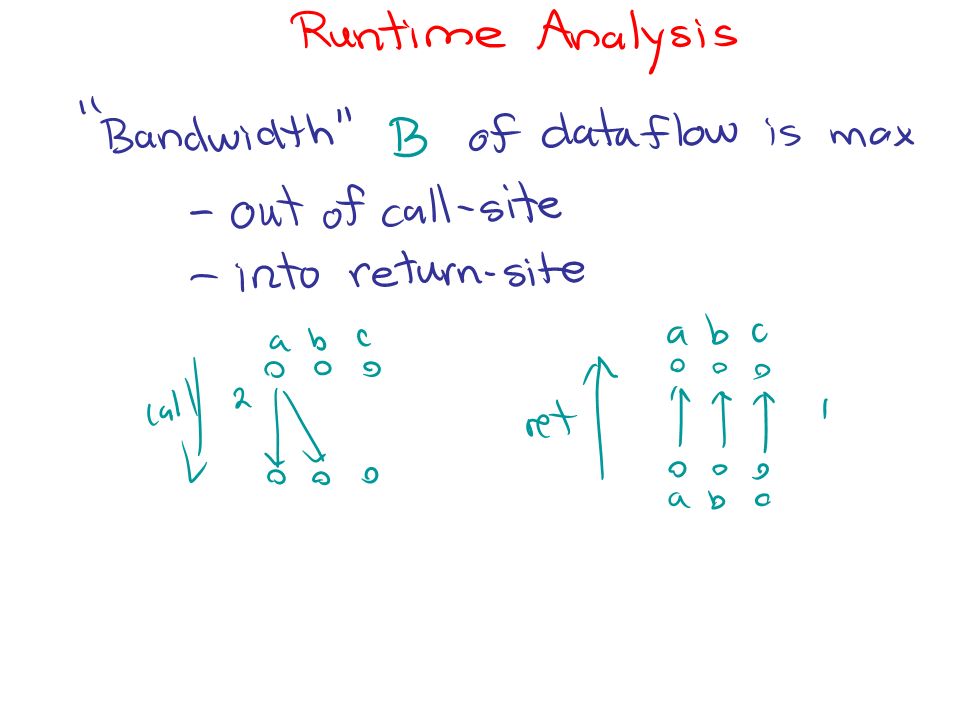 Runtime Analysis
"Bandwidth" B of dataflow is max
- out of call-site
- into return-site
a b c
call 2
a b c
ret 1
a b c